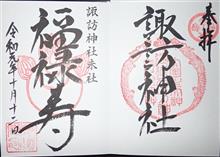 奉拝
諏訪神社
諏訪神社末社
福禄寿
令和元年十月十二日